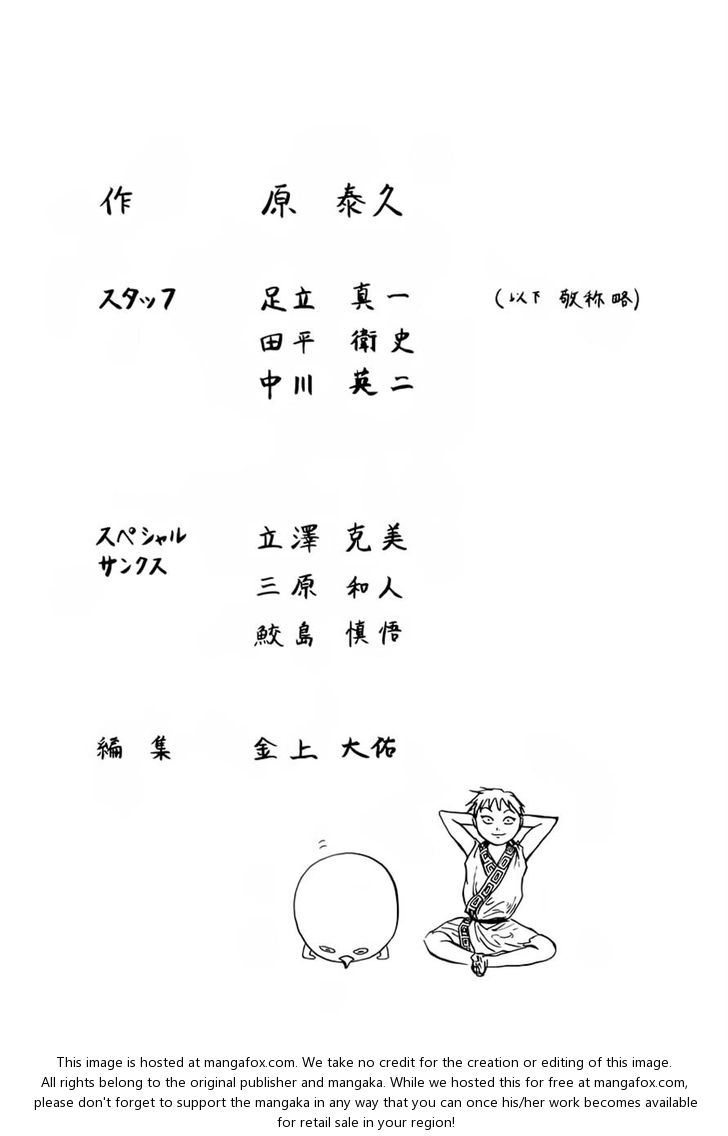 作 原 泰久
スタッフ 足立 真一 (以下 敬称略)
田平 衛史
中川 英二
スペシャル
サンクス
立澤 克美
三原 和人
鮫島 慎悟
編集 金上 大佑
This image is hosted at mangafox.com. We take no credit for the creation or editing of this image.
All rights belong to the original publisher and mangaka. While we hosted this for free at mangafox.com,
please don't forget to support the mangaka in any way that you can once his/her work becomes available
for retail sale in your region!